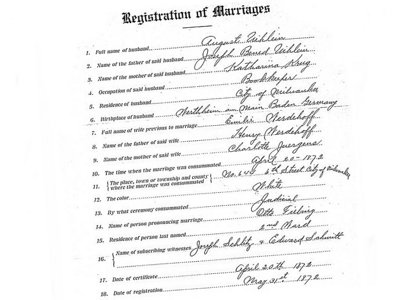 Registration of Marriages
1. Full name of husband August Uihlein
2. Name of the father of said husband Joseph Bened Uihlein
3. Name of the mother of said husband Katharina Krug
4. Occupation of said husband Bookkeeper
5. Residence of husband City of Milwaukee
6. Birthplace of husband Wertheim am Main Baden Germany
7. Full name of wife previous to marriage Emilie Werdehoff
8. Name of the father of said wife Henry Werdehoff
9. Name of the mother of said wife Charlotte Juergens
10. The time when the marriage was consummated April 20 - 1872
11. The place, town or township and county where the marriage was consummated No. 649 6th Street City of Milwaukee
12. The color White
13. By what ceremony consummated Judicial
14. Name of person pronouncing marriage Otto Fiebing
15. Residence of person last named 2nd Ward
16. Name of subscribing witnesses Joseph Schlitz & Edward Schmitt
17. Date of certificate April 20th 1872
18. Date of registration May 31st 1872